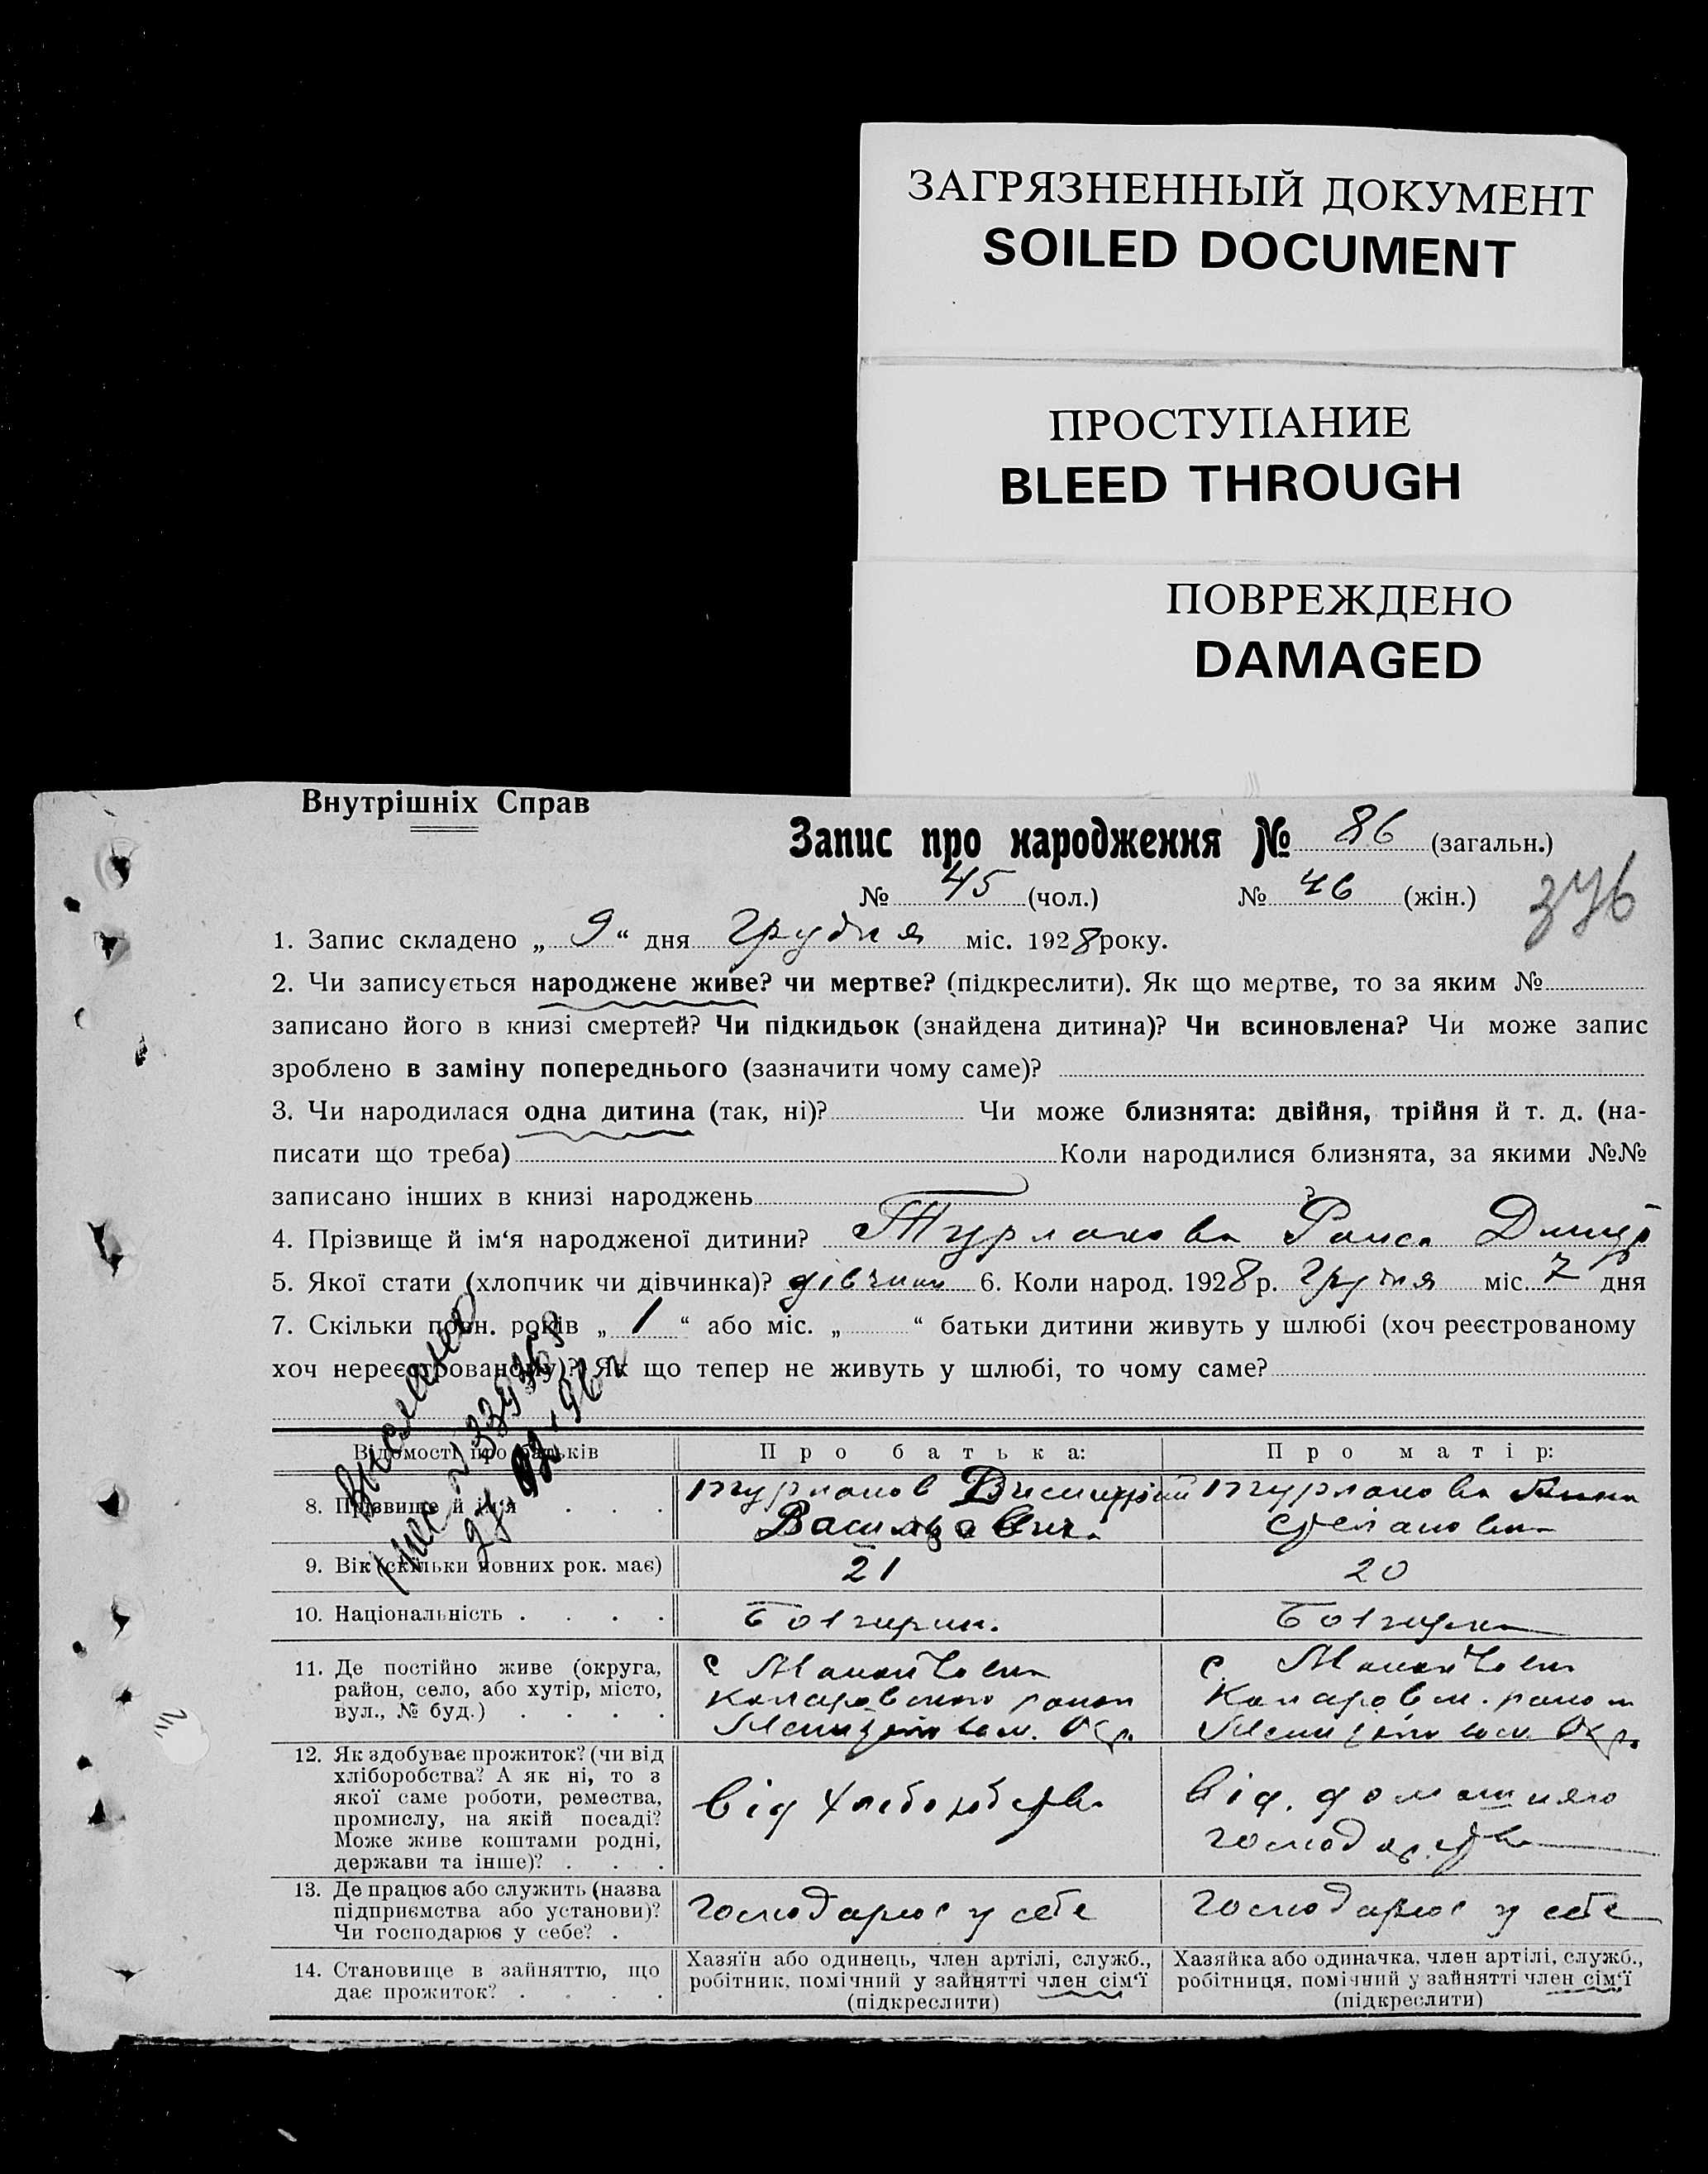 ЗАГРЯЗНЕННЫЙ ДОКУМЕНТ
SOILED DOCUMENT
ПРОСТУПАНИЕ
BLEED THROUGH
ПОВРЕЖДЕНО
DAMAGED
Внутрішніх Справ
Запис про народження № 86 (загальн.)
№ 45 (чол.) № 46 (жін.)
376
1. Запис складено „ 9 “ дня Грудня міс. 1928 року.
2. Чи записується народжене живе? чи мертве? (підкреслити). Як що мертве, то за яким №
записано його в книзі смертей? Чи підкидьок (знайдена дитина)? Чи всиновлена? Чи може запис
зроблено в заміну попереднього (зазначити чому саме)?
3. Чи народилася одна дитина (так, ні)? Чи може близнята: двійня, трійня й т. д. (на-
писати що треба) Коли народилися близнята, за якими №№
записано інших в книзі народжень ?
4. Прізвище й ім‘я народженої дитини? Турланова Раиса
5. Якої стати (хлопчик чи дівчинка)? дівчина 6. Коли народ. 1928 р. Грудня міс. 7 дня
7. Скільки повн. років „ 1 “ або міс. „ “ батьки дитини живуть у шлюбі (хоч реєстрованому
хоч нереєстрованому)? Як що тепер не живуть у шлюбі, то чому саме?
Відомості про батьків Про батька: Про матір:
8. Прізвище й ім‘я . . . Турланов Турланова Анна
Степановна
9. Вік (скільки повних рок. має) 21 20
10. Національність . . . . Болгарин. Болгарка
11. Де постійно живе (округа,
район, село, або хутір, місто,
вул., № буд.) . . . .
с Мануйловка
с. Мануйловка
12. Як здобуває прожиток? (чи від
хліборобства? А як ні, то з
якої саме роботи, ремества,
промислу, на якій посаді?
Може живе коштами родні,
держави та інше)? . . . .
від хліборобства
від. домашняго
господарства
13. Де працює або служить (назва
підприємства або установи)?
Чи господарює у себе? .
господарює у себе
господарює у себе
14. Становище в зайняттю, що
дає прожиток? . . . .
Хазяїн або одинець, член артілі, служб.,
робітник, помічний у зайнятті член сім‘ї
(підкреслити)
Хазяйка або одиначка, член артілі, служб.,
робітниця, помічний у зайнятті член сім‘ї
(підкреслити)